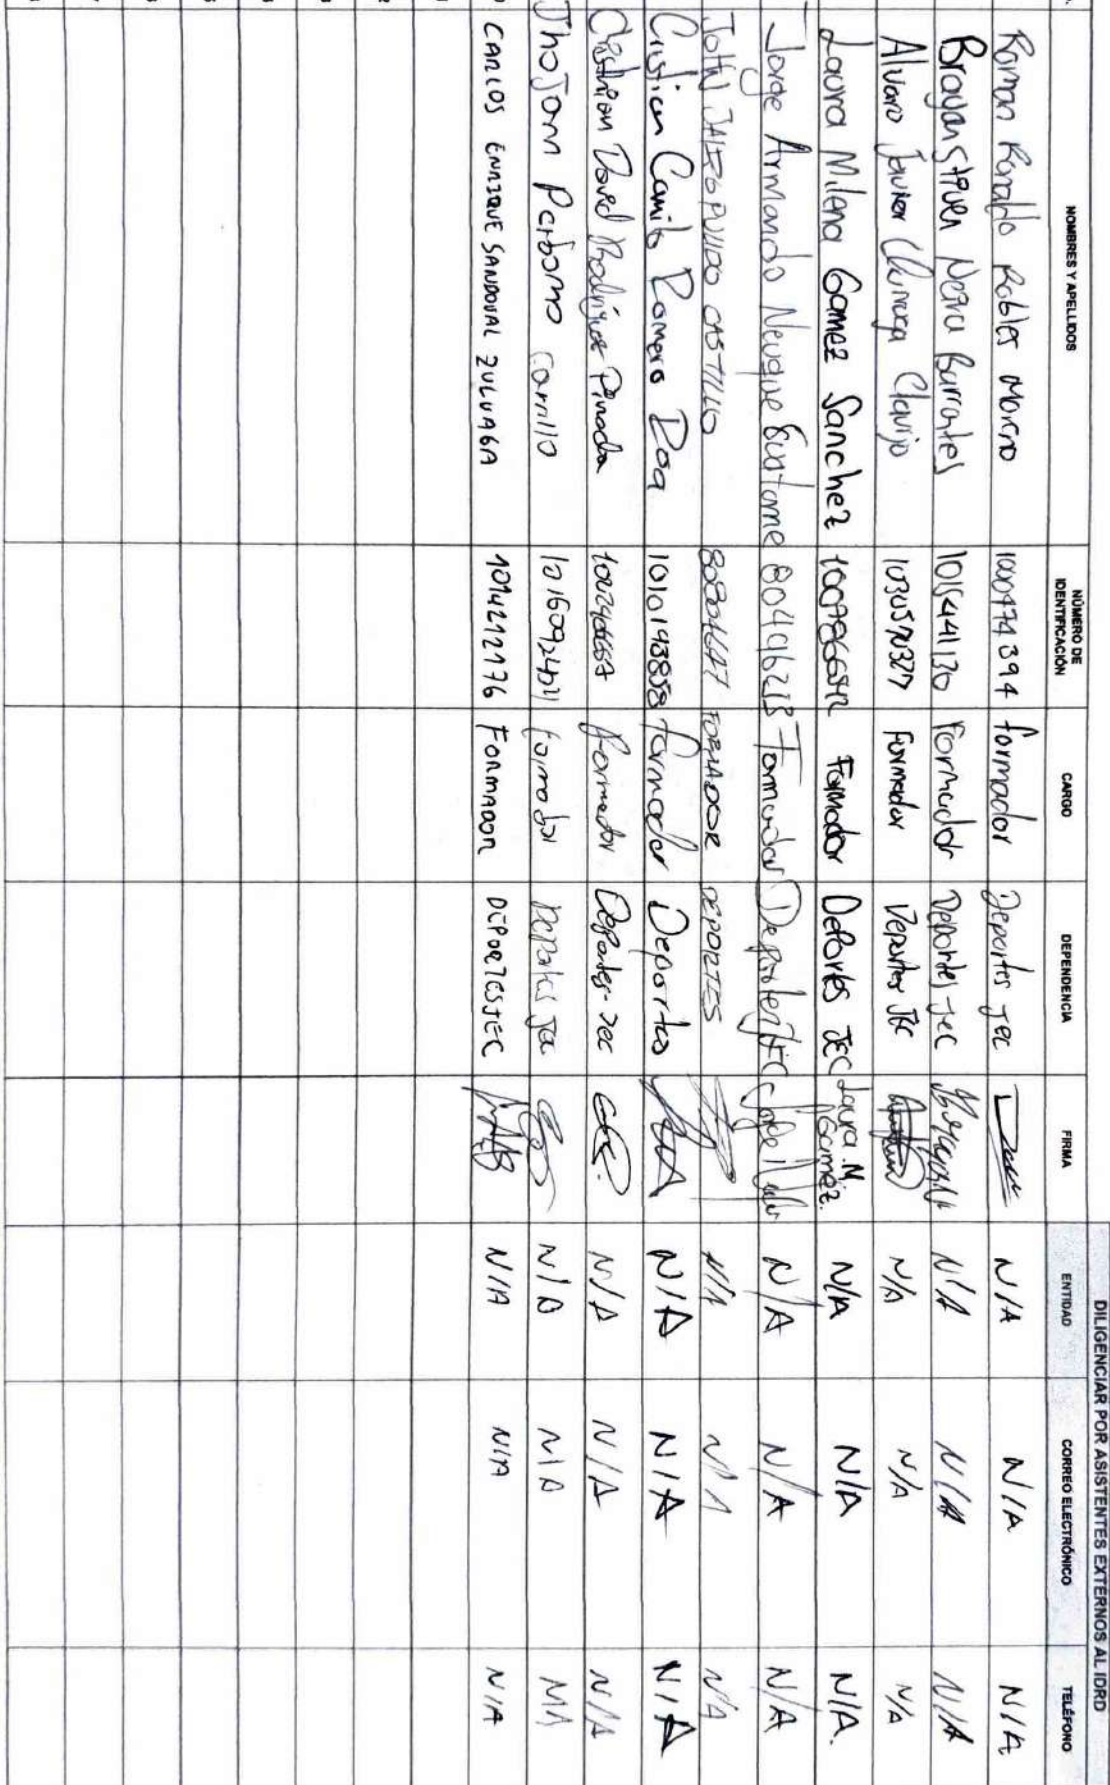 DILIGENCIAR POR ASISTENTES EXTERNOS AL IDRD
NOMBRES Y APELLIDOS NÚMERO DE IDENTIFICACIÓN CARGO DEPENDENCIA FIRMA ENTIDAD CORREO ELECTRÓNICO TELÉFONO
Roman Ronaldo Robles Moreno formador Deportes jec N/A N/A N/A
Brayan Stiven Neira Barrantes 1015441130 Formador Deportes jec N/A N/A N/A
Alvaro Javier Clavijo Formador Deportes JEC N/A N/A N/A
Laura Milena Gamez Sanchez Formador Deportes JEC Laura M. Gamez. N/A N/A N/A.
Jorge Armando Neuque 80496213 Formador N/A N/A N/A
JOHN JAIRO PULIDO CASTILLO FORMADOR DEPORTES N/A N/A N/A
Cristian Camilo Romero Roa 1010193858 formador Deportes N/A N/A N/A
David Rodriguez Pineda Formador Deportes-Jec N/A N/A N/A
Jhojann Perdomo Carrillo formador N/A N/A N/A
CARLOS ENRIQUE SANDOVAL ZULUAGA 1014212176 FORMADOR DEPORTES JEC N/A N/A N/A